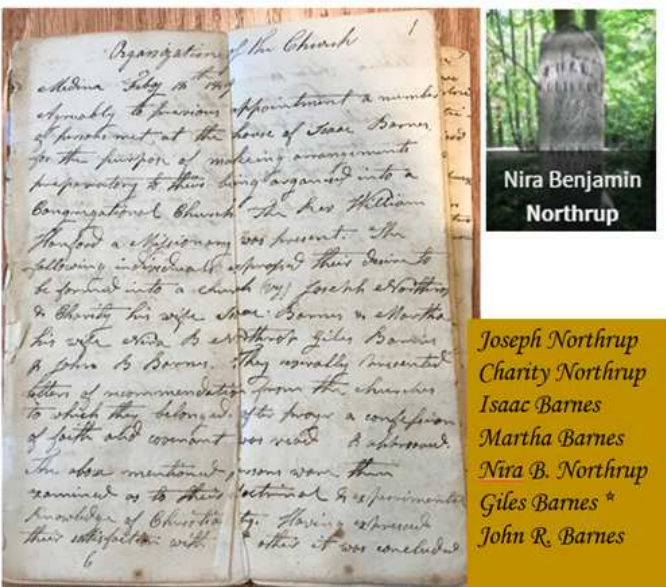 Organization of the Church
1
Medina Feby 18th
Agreeably to previous appointment a number
of persons met at the house of Isaac Barnes
for the purpose of makeing arrangements
preparatory to their being organised into a
Congregational Church The Rev William
Hanford a Missionary was present The
following individuals expressed their desire to
be formed into a church (viz) Joseph Northrop
& Charity his wife Isaac Barnes & Martha
his wife Nira B Northrop Giles Barnes
& John B Barnes. They severally presented
letters of recommendation from the churches
to which they belonged. after prayr a confession
of faith and covenant was read & approved.
The above mentioned persons were then
examined as to their doctrinal & experimental
knowledge of Christianity. Having expressed
their satisfaction with other it was concluded
6
Nira Benjamin
Northrup
Joseph Northrup
Charity Northrup
Isaac Barnes
Martha Barnes
Nira B. Northrup
Giles Barnes *
John R. Barnes